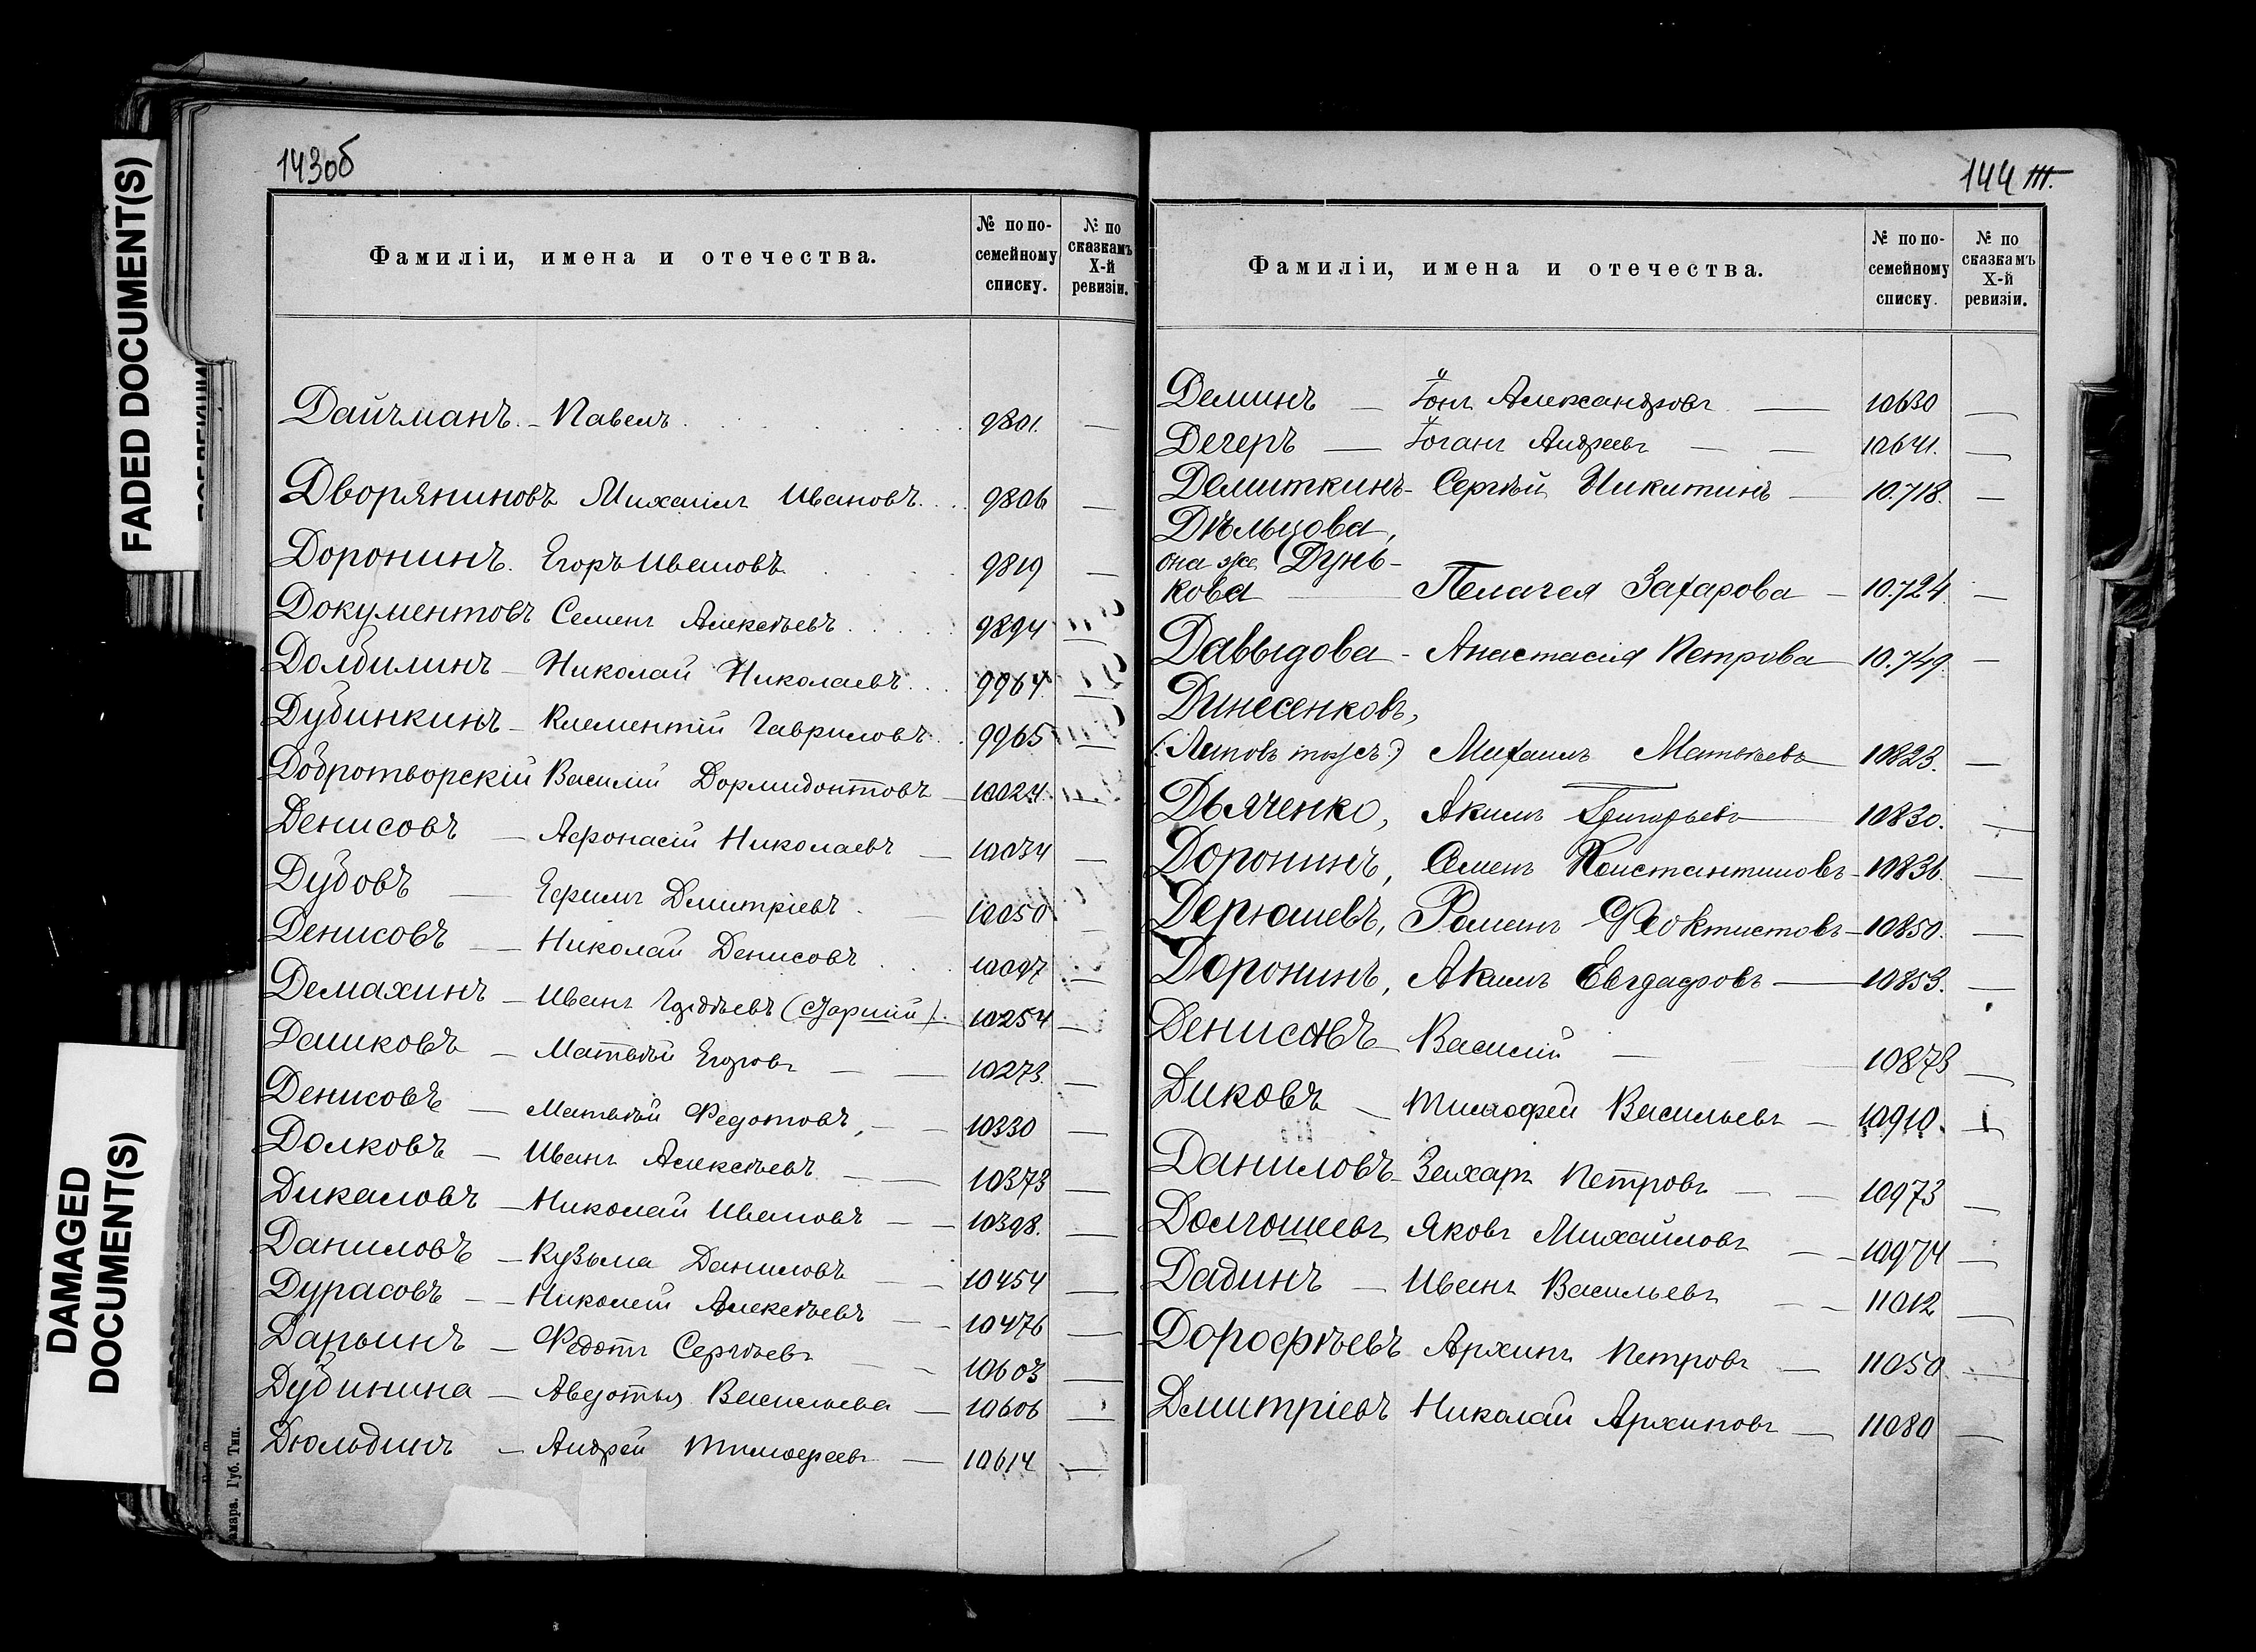 FADED DOCUMENT(S)
DAMAGED
DOCUMENT(S)
143об
Фамиліи, имена и отечества.
№ по по-
семейному
списку.
№ по
сказкамъ
X-й
ревизіи.
Дайчманъ. - Павелъ 9801. —
Дворяниновъ Михаилъ Ивановъ 9806 —
Доронинъ. Егоръ Ивановъ 9819 —
Документовъ Семенъ Алексѣевъ 9894 —
Долбилинъ - Николай Николаевъ 9964 —
Дубинкинъ - Клементій Гавриловъ 9965 —
Добротворскій Василій Дормидонтовъ 10024. —
Денисовъ — Афонасій Николаевъ — 10034 —
Дубовъ — Ефимъ Дмитріевъ 10050
Денисовъ — Николай Денисовъ 10097 —
Демахинъ — Иванъ (старшій). 10254 —
Дашковъ — Матвѣй Егоровъ — 10273. —
Денисовъ — Матвѣй Федотовъ, — 10330 —
Долковъ — Иванъ Алексѣевъ — 10373 —
Дикаловъ — Николай Ивановъ — 10398. —
Даниловъ — Кузьма Даниловъ — 10454 —
Дурасовъ — Николай Алексѣевъ — 10476 —
Дарьинъ — Федотъ Сергѣевъ — 10603 —
Дубинина — Авдотья Васильева — 10606 —
Дюльдинъ — Андрей Тимофеевъ — 10614 —
Губ. Тип.
144 III.
Фамиліи, имена и отечества.
№ по по-
семейному
списку.
№ по
сказкамъ
X-й
ревизіи.
Деминъ — Іонъ Александровъ — 10630 —
Дегеръ — Іоганъ Андреевъ — 10641. —
Демиткинъ - Сергѣй Никитинъ — 10.718. —
Дѣльцова,
она же Дунь-
кова — Пелагея Захарова — 10.724 —
Давыдова - Анастасія Петрова — 10.749. —
Динесенковъ,
(Липовъ тожъ.) Михаилъ Матвѣевъ — 10823. —
Дьяченко, Акимъ Григорьевъ — 10830. —
Доронинъ, Семенъ Константиновъ - 10836. —
Дерюшевъ, Романъ Феоктистовъ - 10850. —
Доронинъ, Акимъ Евдафовъ — 10853. —
Денисовъ — Василій — 10873 —
Диковъ — Тимофей Васильевъ — 10910. —
Даниловъ - Захаръ Петровъ — 10973 —
Долгошеевъ Яковъ Михайловъ — 10974 —
Дадинъ — Иванъ Васильевъ — 11012 —
Дорофѣевъ Архипъ Петровъ — 11050 —
Дмитріевъ Николай Архиповъ — 11080 —